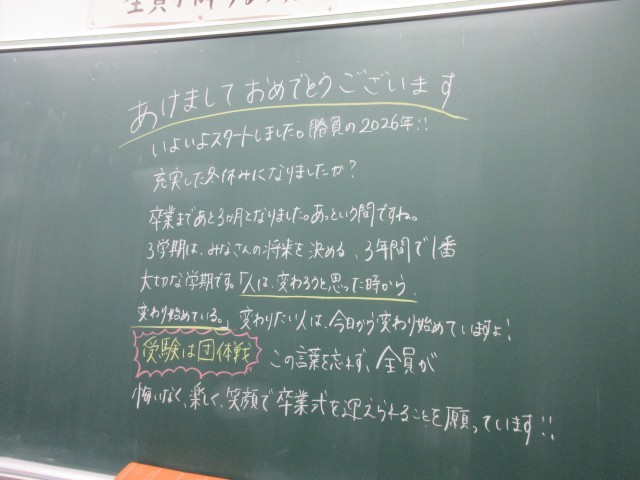 あけましておめでとうございます
いよいよスタートしました。勝負の2026年!!
充実した冬休みになりましたか?
卒業まであと3ヶ月となりました。あっという間ですね。
3学期は、みなさんの将来を決める、3年間で1番
大切な学期です。「人は、変わろうと思った時から、
変わり始めている。」変わりたい人は、今日から変わり始めていますよ!
受験は団体戦 この言葉を忘れず、全員が
悔いなく、楽しく、笑顔で卒業式を迎えられることを願っています!!